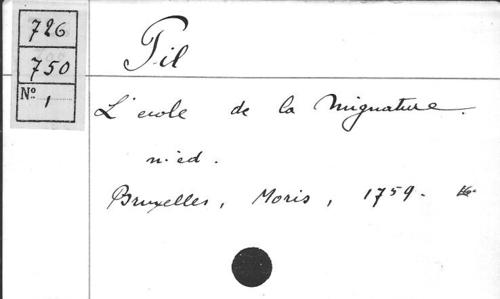 726
750
Nº 1
Pil
L'école de la Mignature.
n. éd.
Bruxelles, Moris, 1759.